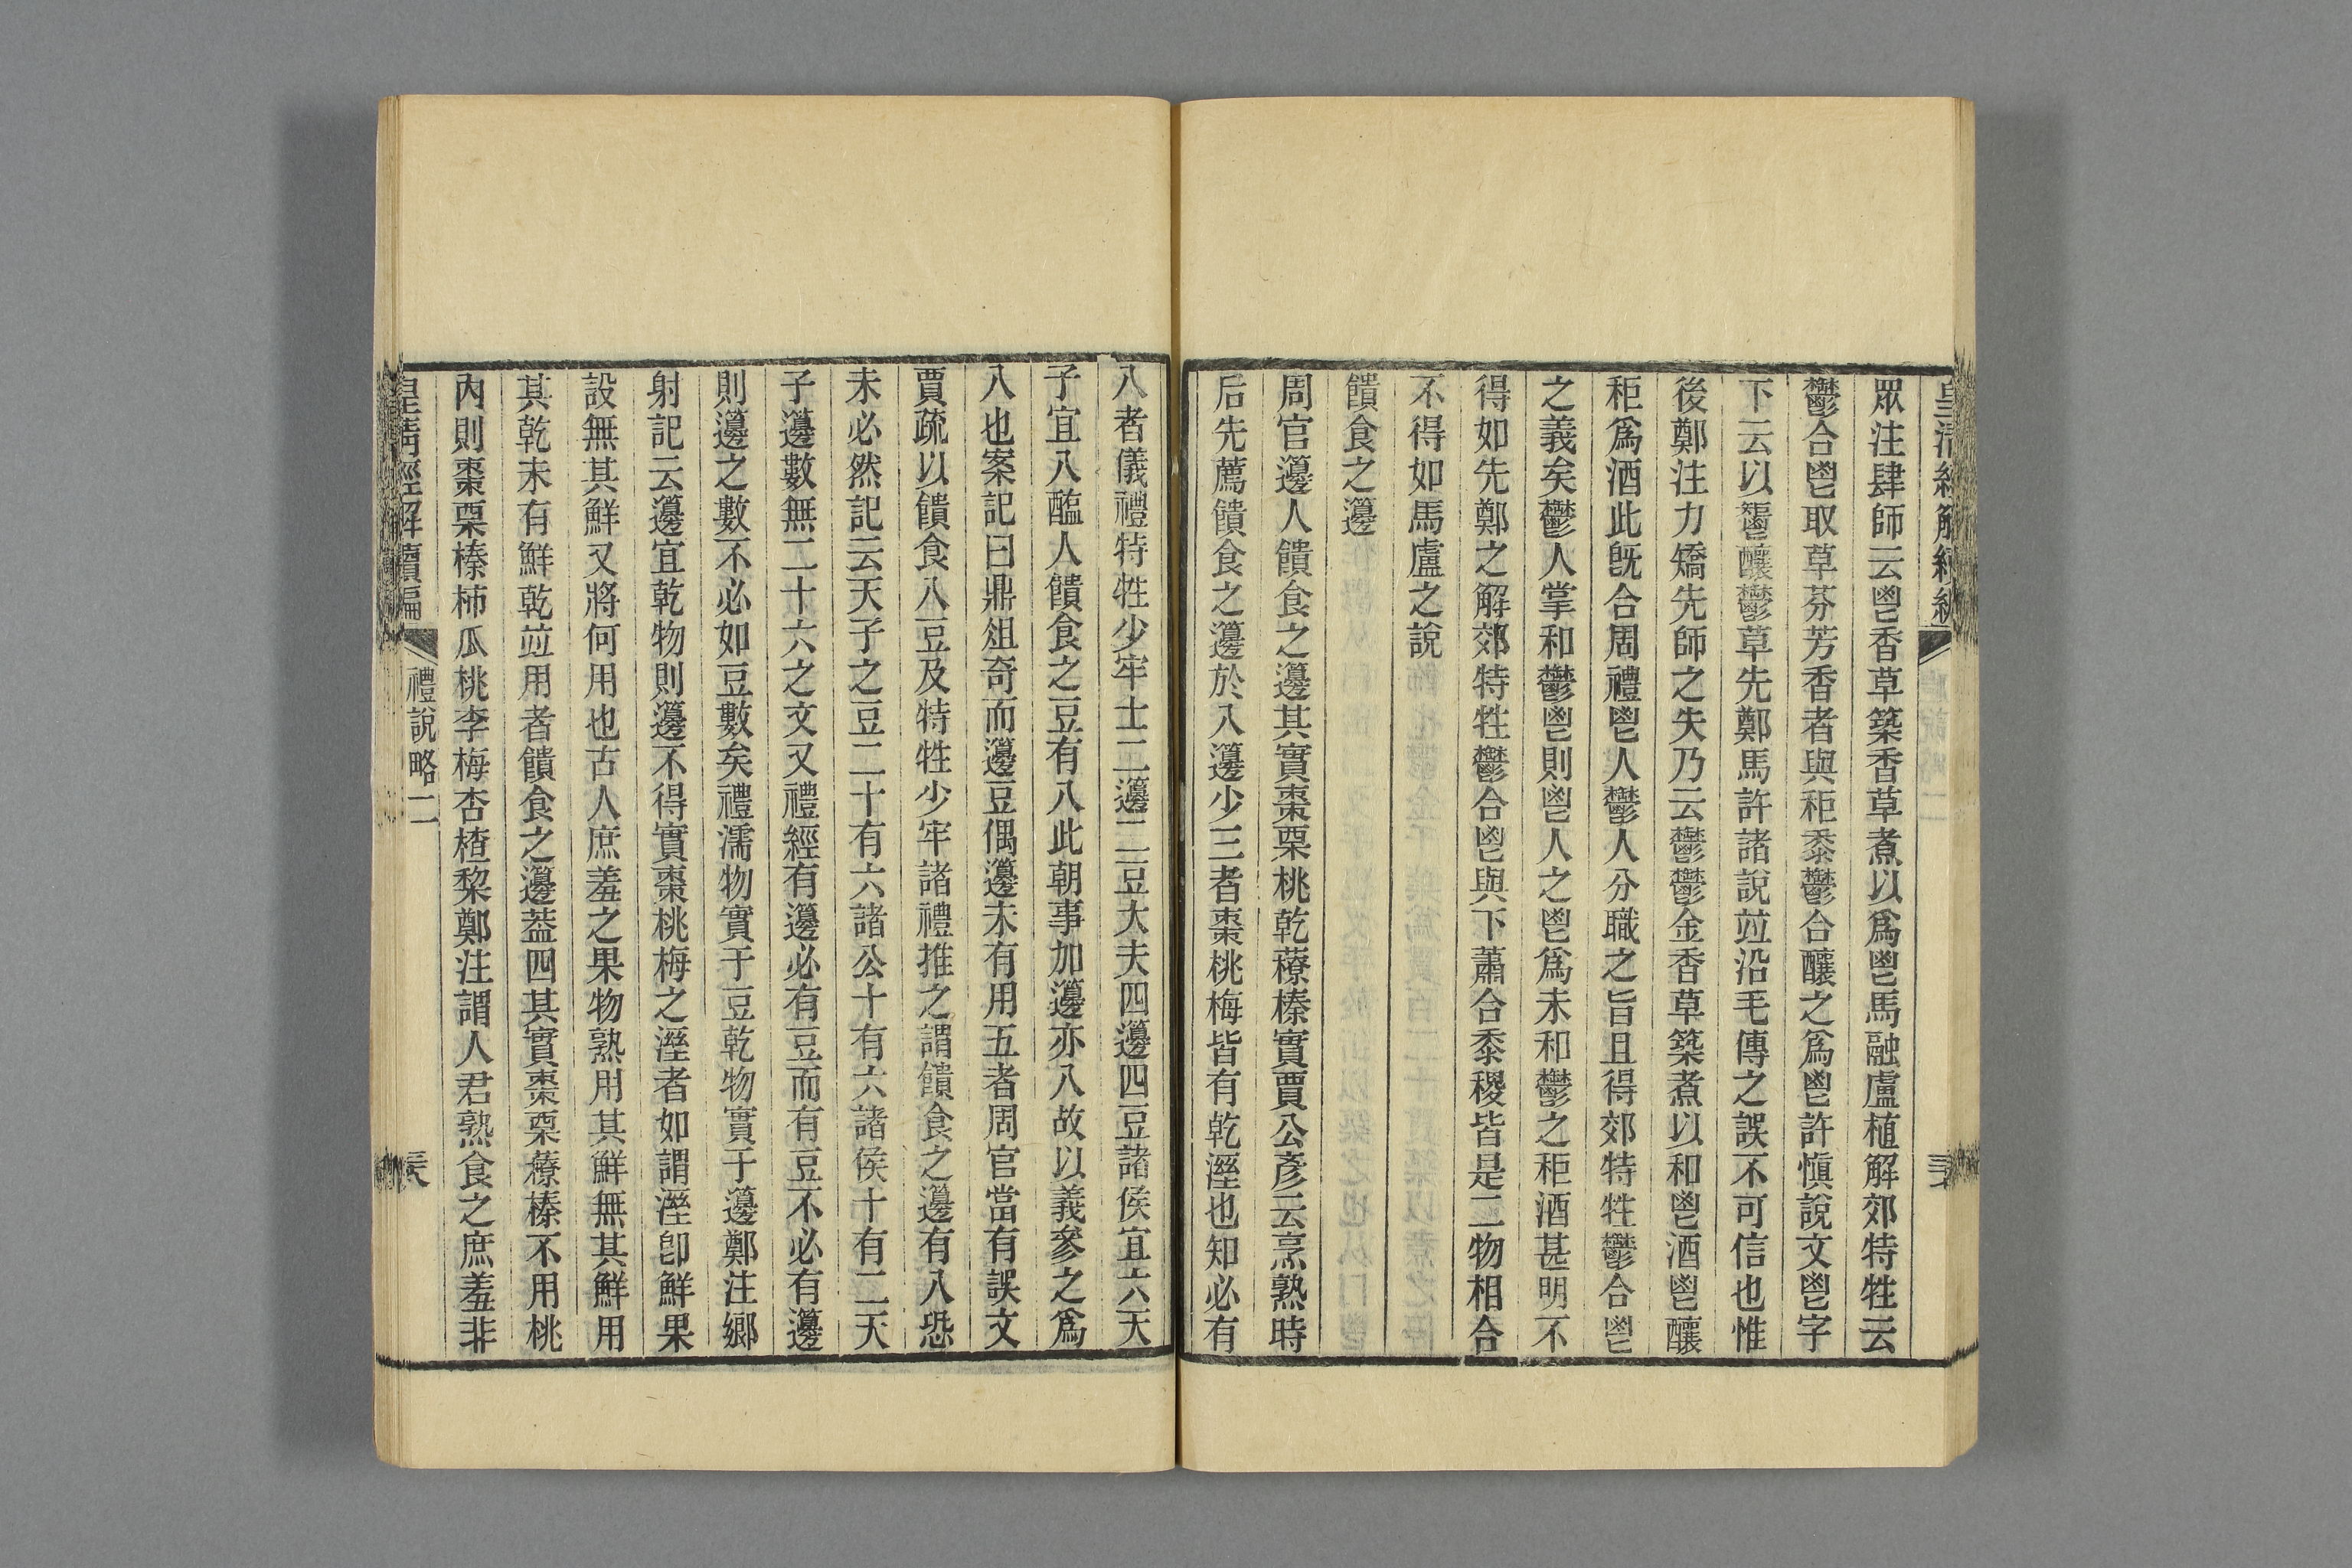 皇清經解續編
眾注肆師云鬯香草築香草煮以爲鬯馬融盧植解郊特牲云
鬱合鬯取草芬芳香者與秬黍鬱合釀之爲鬯許愼說文鬯字
下云以秬釀鬱草先鄭馬許諸說竝沿毛傳之誤不可信也惟
後鄭注力矯先師之失乃云鬱鬱金香草築煮以和鬯酒鬯釀
秬爲酒此旣合周禮鬯人鬱人分職之旨且得郊特牲鬱合鬯
之義矣鬱人掌和鬱鬯則鬯人之鬯爲未和鬱之秬酒甚明不
得如先鄭之解郊特牲鬱合鬯與下蕭合黍稷皆是二物相合
不得如馬盧之說
饋食之籩
周官籩人饋食之籩其實棗栗桃乾䕩榛實賈公彥云烹熟時
后先薦饋食之籩於入籩少三者棗桃梅皆有乾溼也知必有
八者儀禮特牲少牢士二籩二豆大夫四籩四豆諸侯宜六天
子宜八醢人饋食之豆有八此朝事加籩亦八故以義參之爲
八也案記曰鼎俎奇而籩豆偶籩未有用五者周官當有誤文
賈疏以饋食八豆及特牲少牢諸禮推之謂饋食之籩有八恐
未必然記云天子之豆二十有六諸公十有六諸侯十有二天
子籩數無二十六之文又禮經有籩必有豆而有豆不必有籩
則籩之數不必如豆數矣禮濡物實于豆乾物實于籩鄭注鄉
射記云籩宜乾物則籩不得實棗桃梅之溼者如謂溼卽鮮果
設無其鮮又將何用也古人庶羞之果物熟用其鮮無其鮮用
其乾未有鮮乾竝用者饋食之籩葢四其實棗栗䕩榛不用桃
內則棗栗榛柿瓜桃李梅杏楂棃鄭注謂人君熟食之庶羞非
皇清經解續編
禮說略二